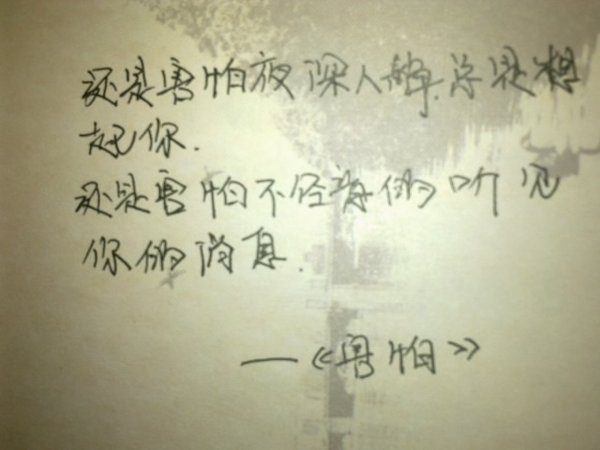 还是害怕夜深人静.总是想
起你.
还是害怕不经意的听见
你的消息.
—《害怕》